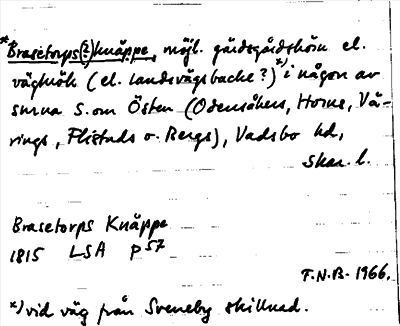 *Brasetorps(?)knäppe, möjl. gärdsgårdshörn el.
vägkrök (el. landsvägsbacke?)*) i någon av
srnna S. om Östen (Odensåkers, Horns, Vä-
rings, Flistads o. Bergs), Vadsbo hd,
Skar. l.
Brasetorps Knäppe
1815 LSA P 57
T.N.B. 1966.
*) vid väg från Sveneby skillnad.